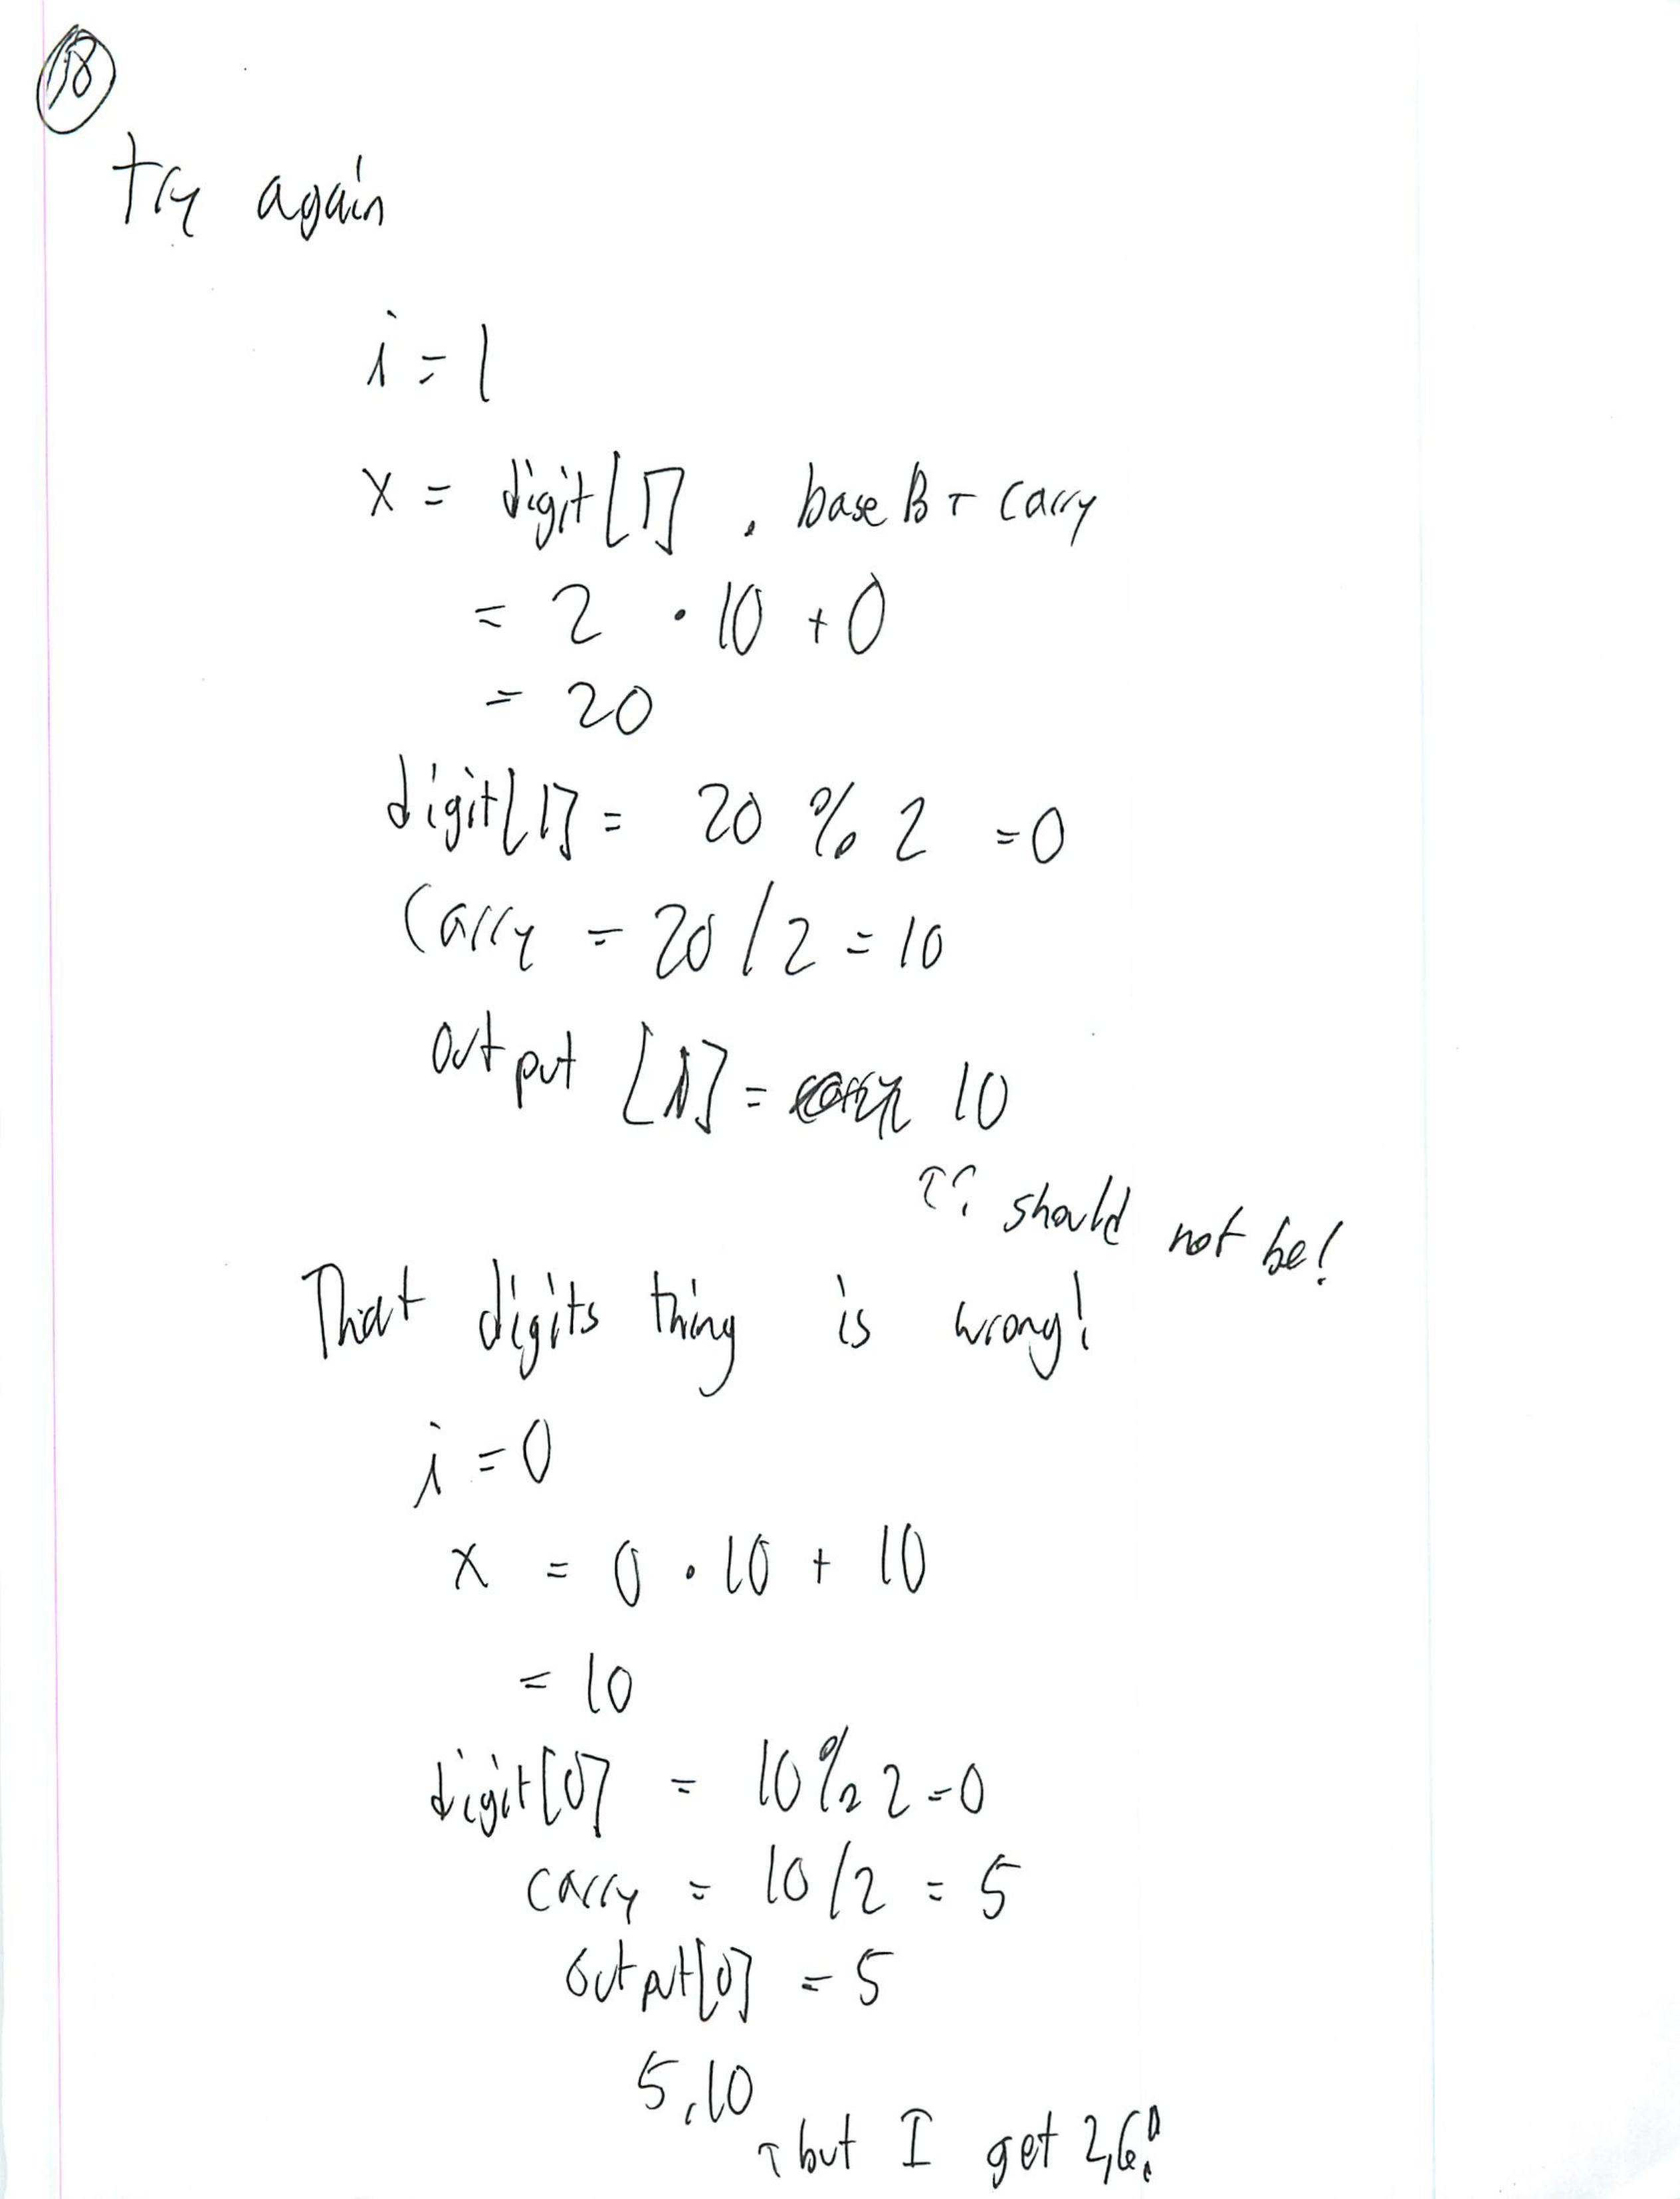 18
try again
i = 1
x = digit[1] . base B + carry
= 2 · 10 + 0
= 20
digit[1] = 20 % 2 = 0
carry = 20 / 2 = 10
output [1] = 10
↑? should not be!
That digits thing is wrong!
i = 0
x = 0 · 10 + 10
= 10
digit[0] = 10 % 2 = 0
carry = 10 / 2 = 5
output[0] = 5
5,10
↑ but I get 2,6!